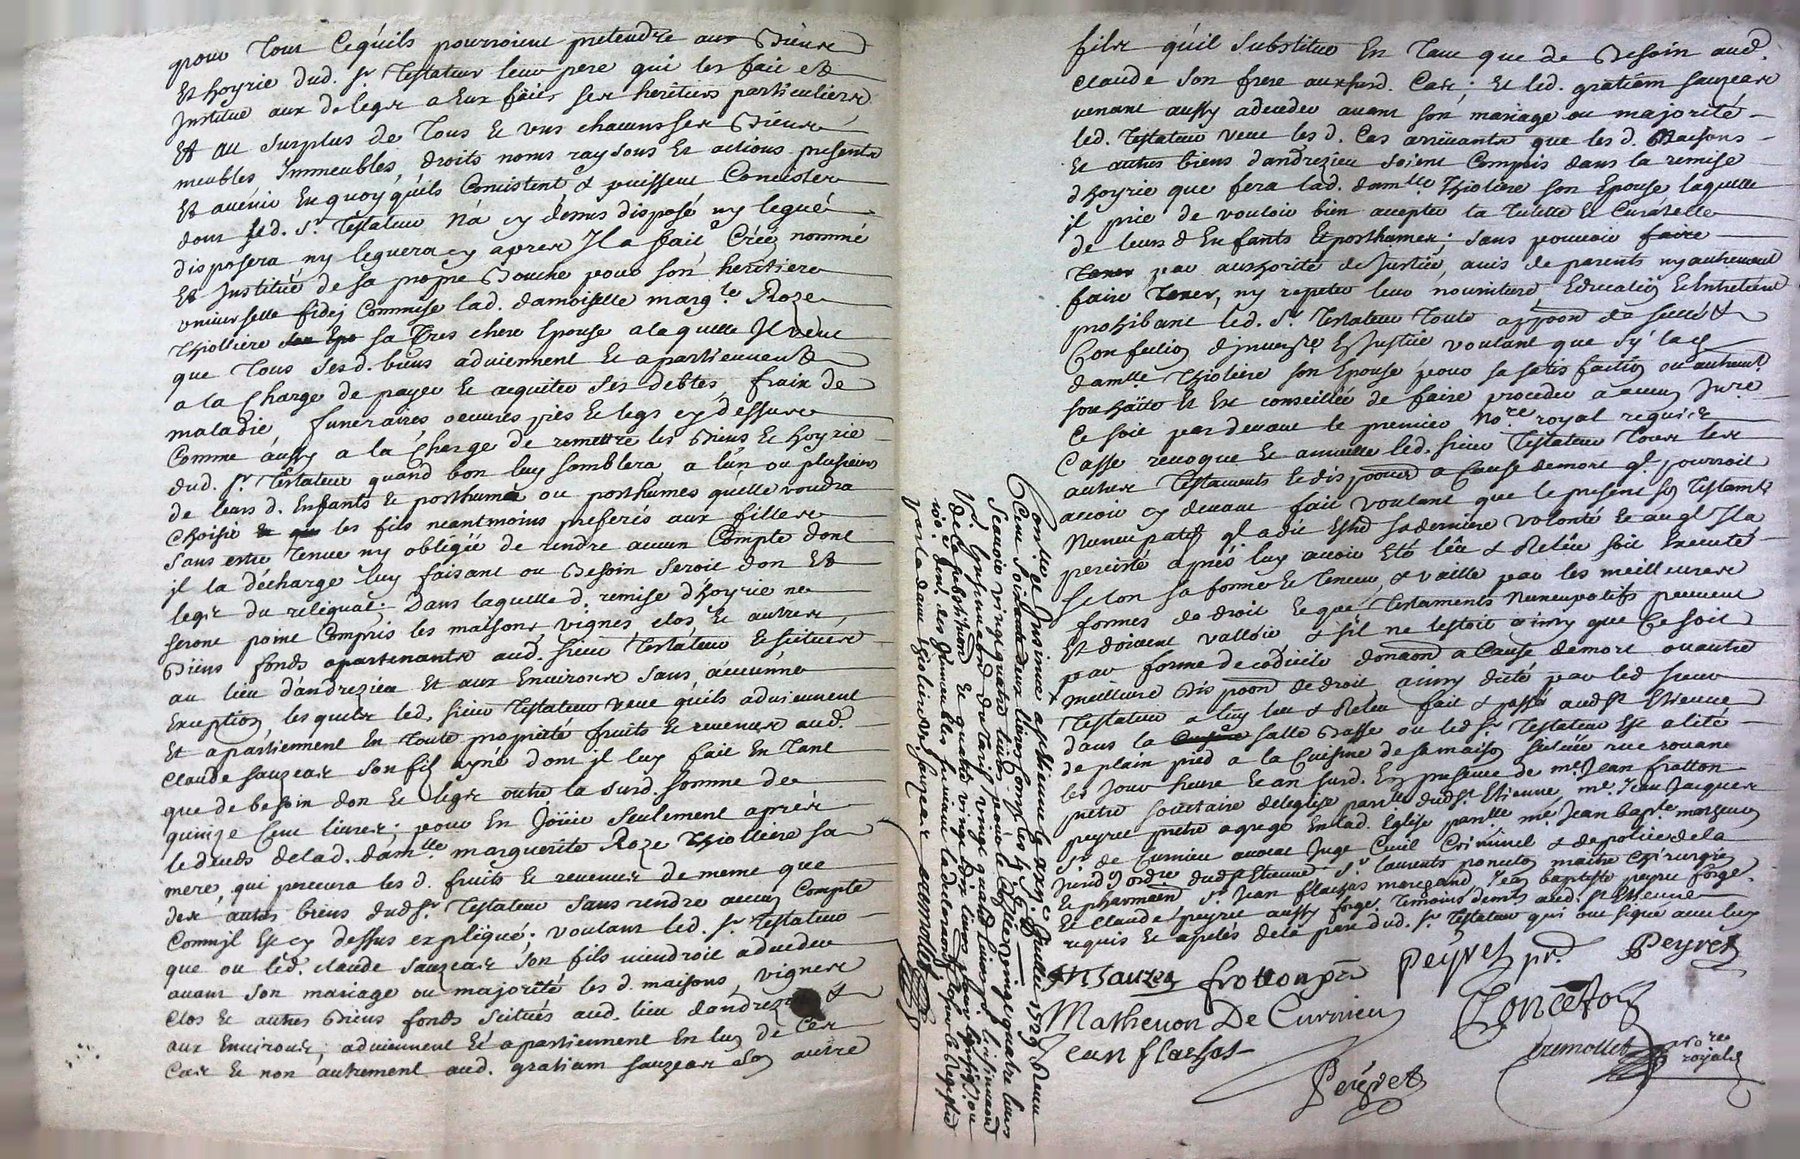 pour Tout Cequils pourroient pretendre aux Biens
Et hoyrie dud. Sr. Testateur leur pere qui les fait et
Institue aux d. legs a Eux faits ses heritiers particuliers
Et au surplus de Tous Et uns chacuns ses Biens
meubles Immeubles, droits noms raysons Et actions presents
Et avenir En quoy quils Consistent & puissent Consister
dont led. Sr. Testateur N'a cy dessus disposé ny legué
disposera ny leguera cy apres Il a fait, Créé, nommé
Et Institué de sa propre Bouche pour son heritiere
universelle fidei Commise lad. damoiselle margte. Roze
Thiolliere sa Tres chere Epouse a laquelle Il veut
que Tous sesd. biens adviennent Et apartiennent
a la Charge de payer Et acquiter ses debtes, fraix de
maladie, funeraires oeuvres pies Et legs cy dessus
Comme aussy a la Charge de remettre les Biens Et hoyrie
dud. Sr. Testateur quand bon luy semblera a l'un ou plusieurs
de leurs d. Enfants Et posthume ou posthumes qu'elle voudra
choisir les fils neantmoins preferés aux filles
sans estre Tenue ny obligée de rendre aucun Compte dont
il la décharge luy faisant ou Besoin seroit don Et
legs du reliquat; Dans laquelle d. remise d'hoyrie ne
seront point Compris les maisons, vignes clos, Et autres
Biens fonds apartenants aud. sieur Testateur Et scitués
au lieu d'andrezieu Et aux Environs sans aucunne
Exception, lesquels led. sieur Testateur veut qu'ils adviennent
Et apartiennent En Toute proprieté fruits Et revenus aud.
Claude sauzeas son fils ayné dont il luy fait En Tant
que de besoin don Et legs outre la susd. somme de
quinze Cent livres; pour En Joüir seulement après
le déceds de lad. damlle. marguerite Roze Thiolliere sa
mere, qui percevra les d. fruits Et revenus de meme que
des autres biens dud Sr. Testateur sans rendre aucun Compte
Comm'jl Est cy dessus expliqué; voulant led. Sr. Testateur
que ou led. claude sauzeas son fils viendroit a deceder
avant son mariage ou majorité les d. maisons, vignes
clos Et autres Biens fonds scitués aud. lieu dandrezieu &
aux Environs, adviennent Et apartiennent En luy de Ces
Cas Et non autrement aud. gratiam sauzeas son autre
fils qu'il substitue En Tant que de Besoin aud.
Claude son frere auxsusd. Cas; Et led. gratiam sauzeas
venant aussy a deceder avant son mariage ou majorité
led. Testateur veut les d. Cas arrivants que les d. Maisons
Et autres biens d'andrezieu soient Compris dans la remise
d'hoyrie que fera lad. damlle Thioliere son Epouse laquelle
il prie de vouloir bien accepter la Tutelle Et Curatelle
de leurs d Enfants Et posthumes; sans pouvoir faire
par authorité de Justice, avis de parents ny autrement
faire Taxer, ny repeter leur nourriture Education Et Entretient
prohibant led. Sr. Testateur Toute apposon de scellé &
Confection d'jnventre En Justice voulant que s'y lad
damlle Thioliere son Epouse pour sa satisfaction ou autremt.
souhaitte Et Est conseillée de faire proceder a aucun Jnvre.
Ce soit par devant le premier Nore. royal requis
Casse revoque Et annulle led. sieur Testateur Tous les
autres Testaments Et disposons a Cause de mort ql. pourroit
avoir cy devant fait voulant que le present son Testamt.
Nuncupatif ql. a dit Estre sa derniere volonté Et auql. Jl a
persisté aprés luy avoir Eté leu & Releu soit Executé
selon sa forme Et Teneur, & vaille par les meilleures
formes de droit Et que Testaments Nuncupatifs peuvent
Et doivent valloir & s'il ne restoit ainsy que Ce soit
par forme de codicile donaon a Cause de mort ou autre
meilleure Dispoon de droit ainsy dicté par led sieur
Testateur a luy leu & Releu fait & passé aud St Etienne
dans la salle Basse ou led Sr. Testateur Est alité
de plain pied a la Cuisine de sa maison scituée rue rouane
les Jour heure Et an susd. En presence de me. Jean fratton
prêtre socitaire de leglise parlle dud St. Etienne, me. Jean Jacques
peyret prêtre agregé En lad. Eglise parlle me. Jean Bapte. matheuon
Sr. de Curnieu avocat Juge Civil Criminel & de police de la
Juridon ordre dud St Etienne Sr. laurents ponceton maitre Chirurgien
Et pharmacien Sr. Jean flachas marchand Jean baptiste peyret forgr.
Et Claude peyret aussy forgr. Temoins demts. aud. St Etienne
requis Et apelés de la part dud. Sr. Testateur qui ont signé avec luy
Sauzea frotton ptre Peyret pr. Peyret
Matheuon De Curnieu Poncetton
Jean flachas
Peyret
tremollet Nore
royal
Controllé Et Insinué a st Etienne le